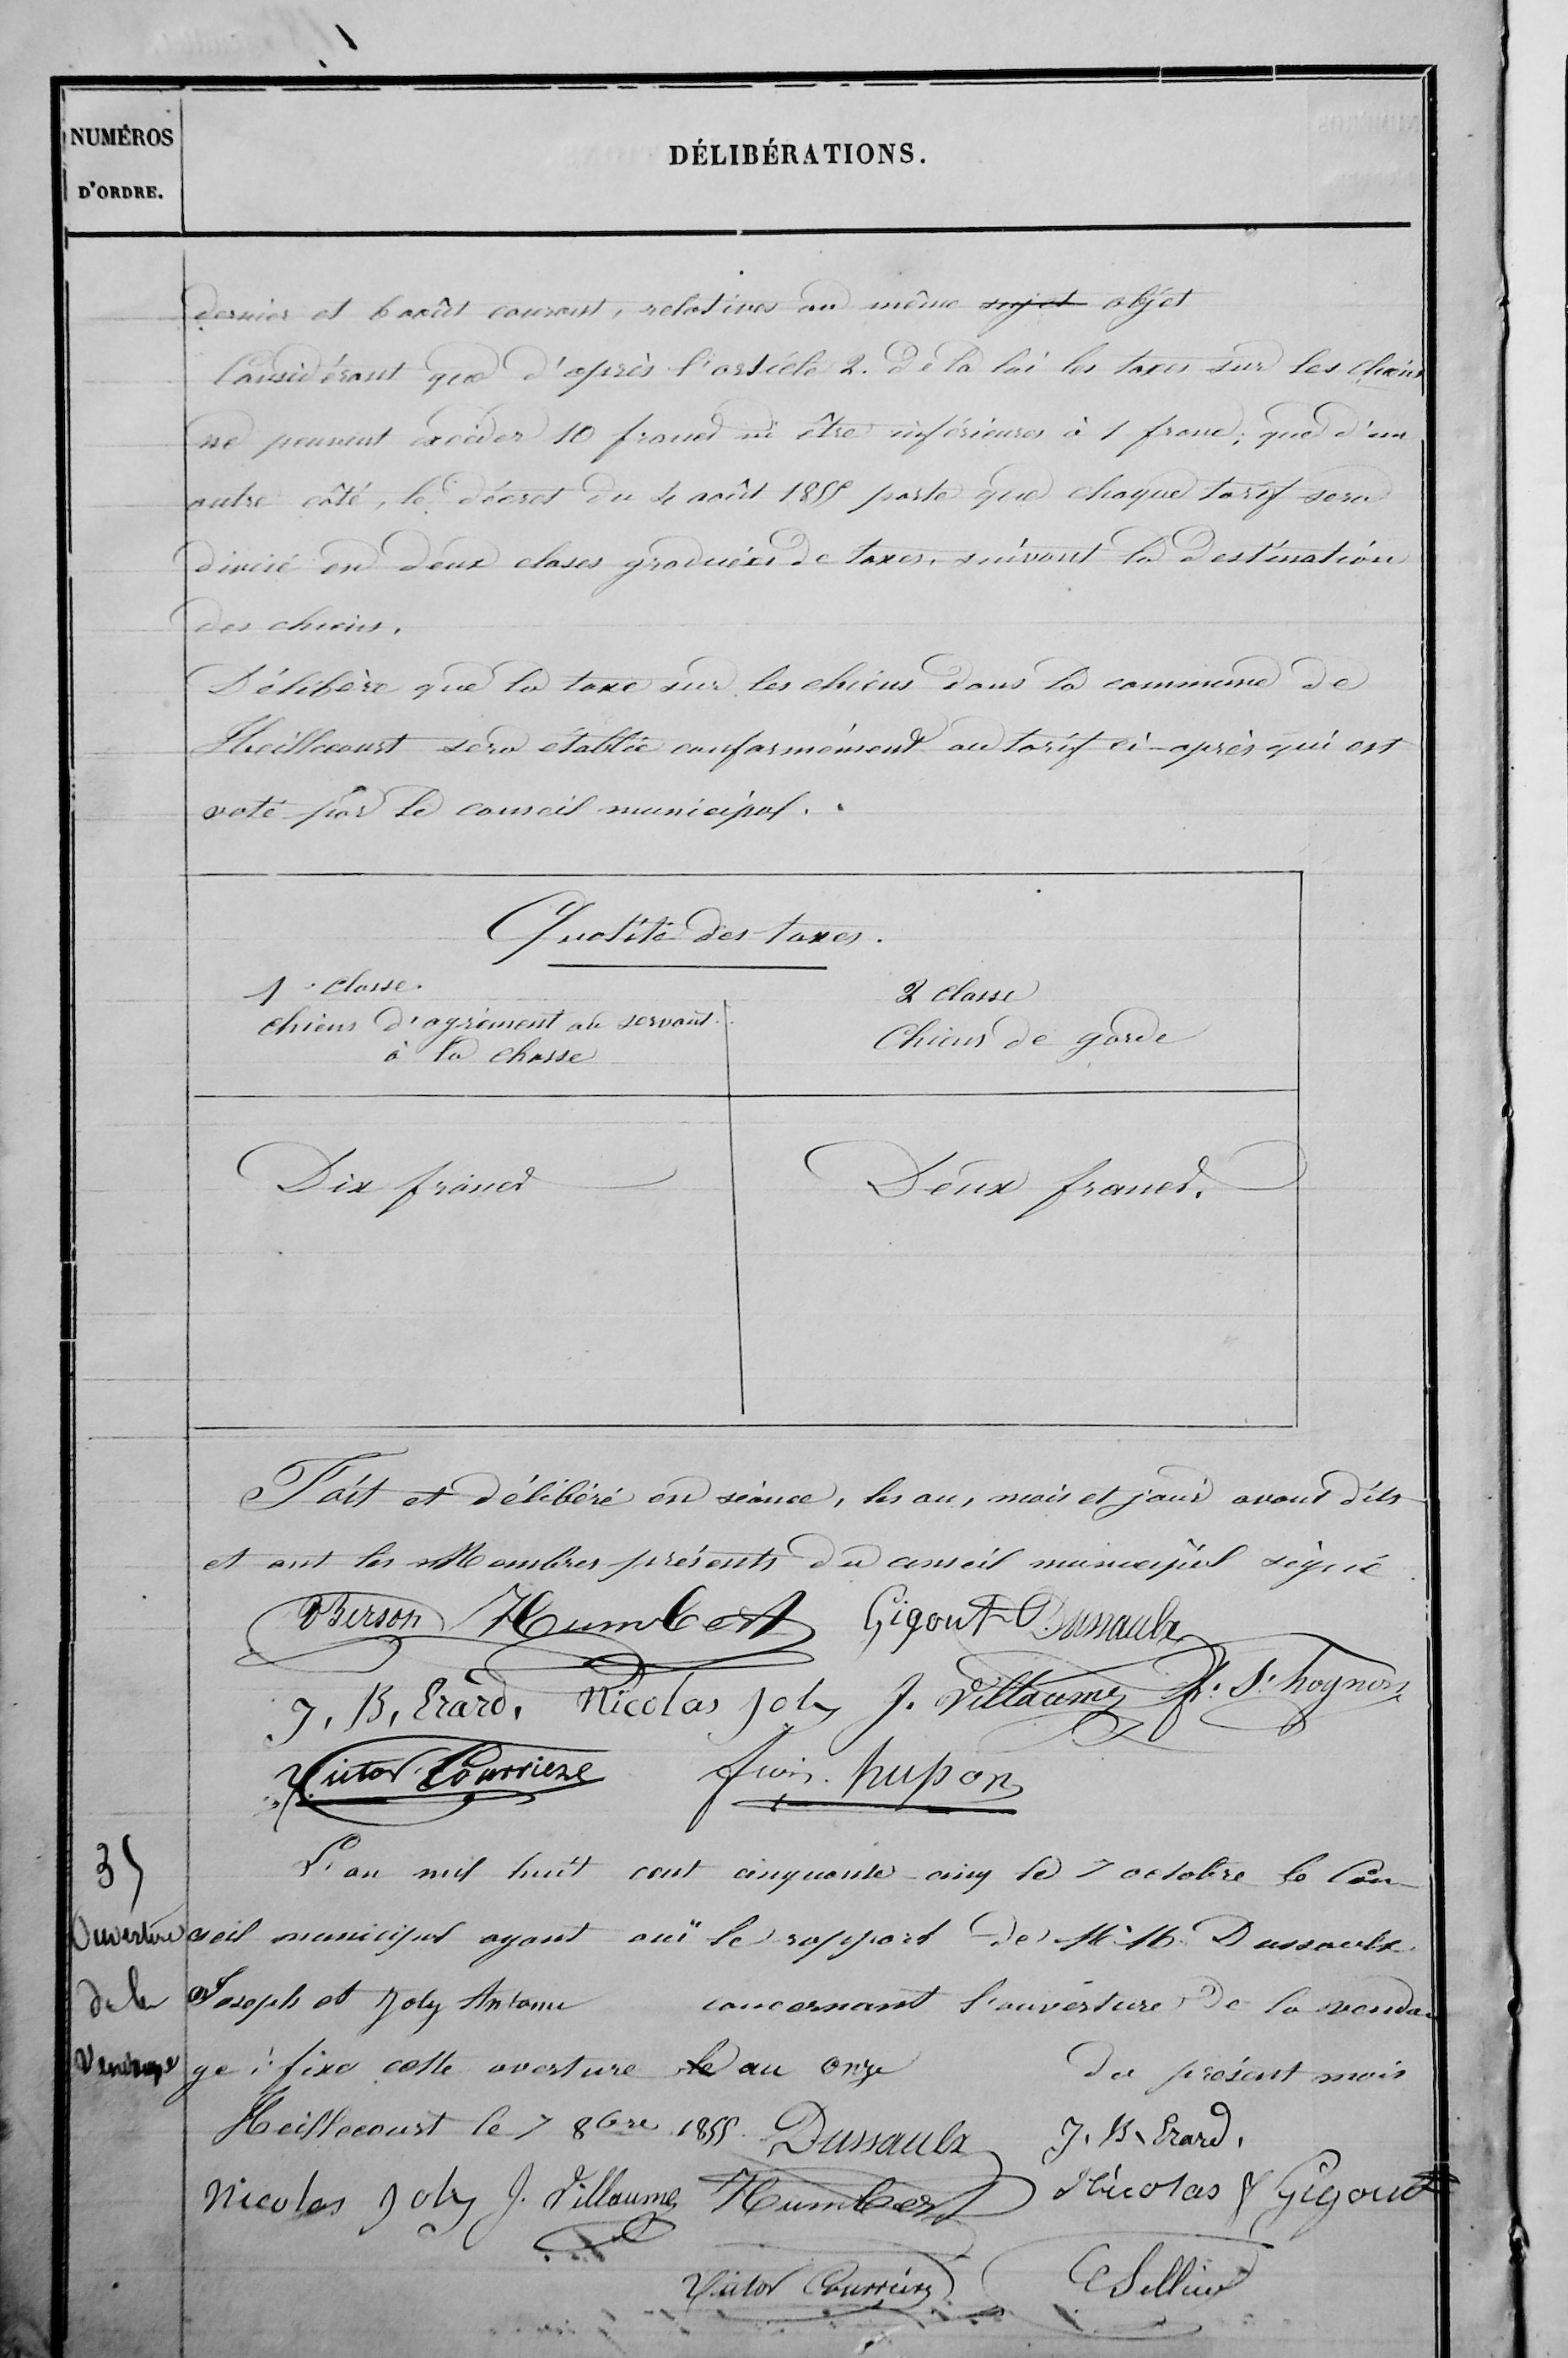 NUMÉROS
D'ORDRE.
DÉLIBÉRATIONS.
dernier et 6 août courant, relatives au même sujet objet
Considérant que d'après l'article 2. de la loi les taxes sur les chiens
ne peuvent excéder 10 francs ni être inférieures à 1 franc; que d'un
autre côté, le décret du 4 août 1855 porte que chaque tarif sera
divisé en deux classes graduées de taxes, suivant la destination
des chiens.
Délibère que la taxe sur les chiens dans la commune de
Heillecourt sera établie conformément au tarif ci-après qui est
voté par le conseil municipal.
Quotité des taxes.
1e classe.
chiens d'agrément ou servant
à la chasse
2 classe
Chiens de garde
Dix francs
Deux francs.
Fait et délibéré en séance, les an, mois et jour avant dits
et ont les Membres présents du conseil municipal signé.
Berson Humbert Gigout Dussaulx
J. B, Erard. Nicolas Joly J. Villaume
Victor Courrière hupon
35
Ouverture
de la
Vendange
L'an mil huit cent cinquante-cinq le 7 octobre le Con-
seil municipal ayant ouï le rapport de MM. Dussaulx
Joseph et Joly Antoine concernant l'ouverture de la vendan
ge : fixe cette overture le au onze du présent mois
Heillecourt le 7 8bre 1855. Dussaulx J. B. Erard.
Nicolas Joly J. Villaume Humbert Nicolas f Gigout
Victor Courrière CSellier